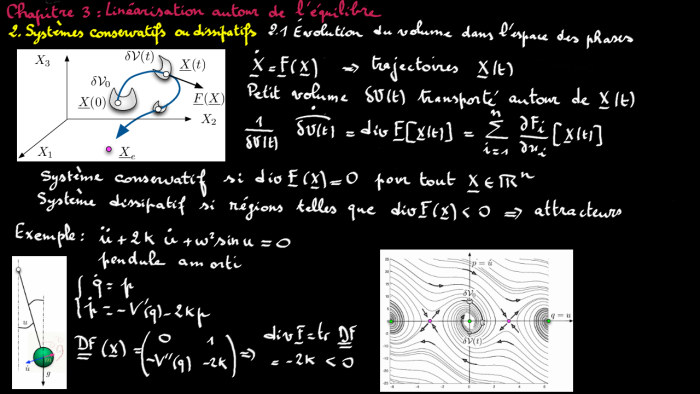 Chapitre 3 : Linéarisation autour de l'équilibre
2. Systèmes conservatifs ou dissipatifs 2.1 Évolution du volume dans l'espace des phases
X₃
δV(t)
X(t)
δV₀
X(0)
F(X)
X₂
X₁
Xₑ
Ẋ = F(X) ⇒ trajectoires X(t)
Petit volume δV(t) transporté autour de X(t)
1/δV(t) δV̇(t) = div F[X(t)] = Σ_{i=1}^{n} ∂Fᵢ/∂xᵢ [X(t)]
Système conservatif si div F(X) = 0 pour tout X ∈ ℝⁿ
Système dissipatif si régions telles que div F(X) < 0 ⇒ attracteurs
Exemple : ü + 2k u̇ + ω² sin u = 0
pendule amorti
{ q̇ = p
{ ṗ = -V'(q) - 2kp
DF(X) = ( 0 1 ; -V''(q) -2k ) ⇒ div F = tr DF
= -2k < 0
u
u̇
g
p = u̇
δV₀
q = u
δV(t)